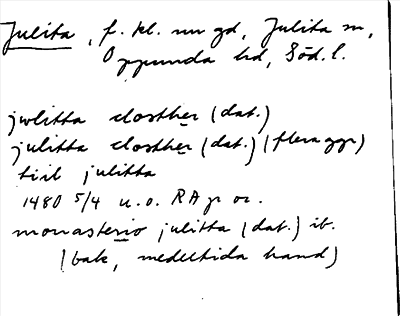 Julita, f. kl. nu gd, Julita sn,
Oppunda hd, Söd.l.
jwlitta closther (dat.)
julitta closther (dat.) (flera ggr)
tiil julitta
1480 5/4 u.o. RAp or.
monasterio julitta (dat.) ib.
(bak, medeltida hand)